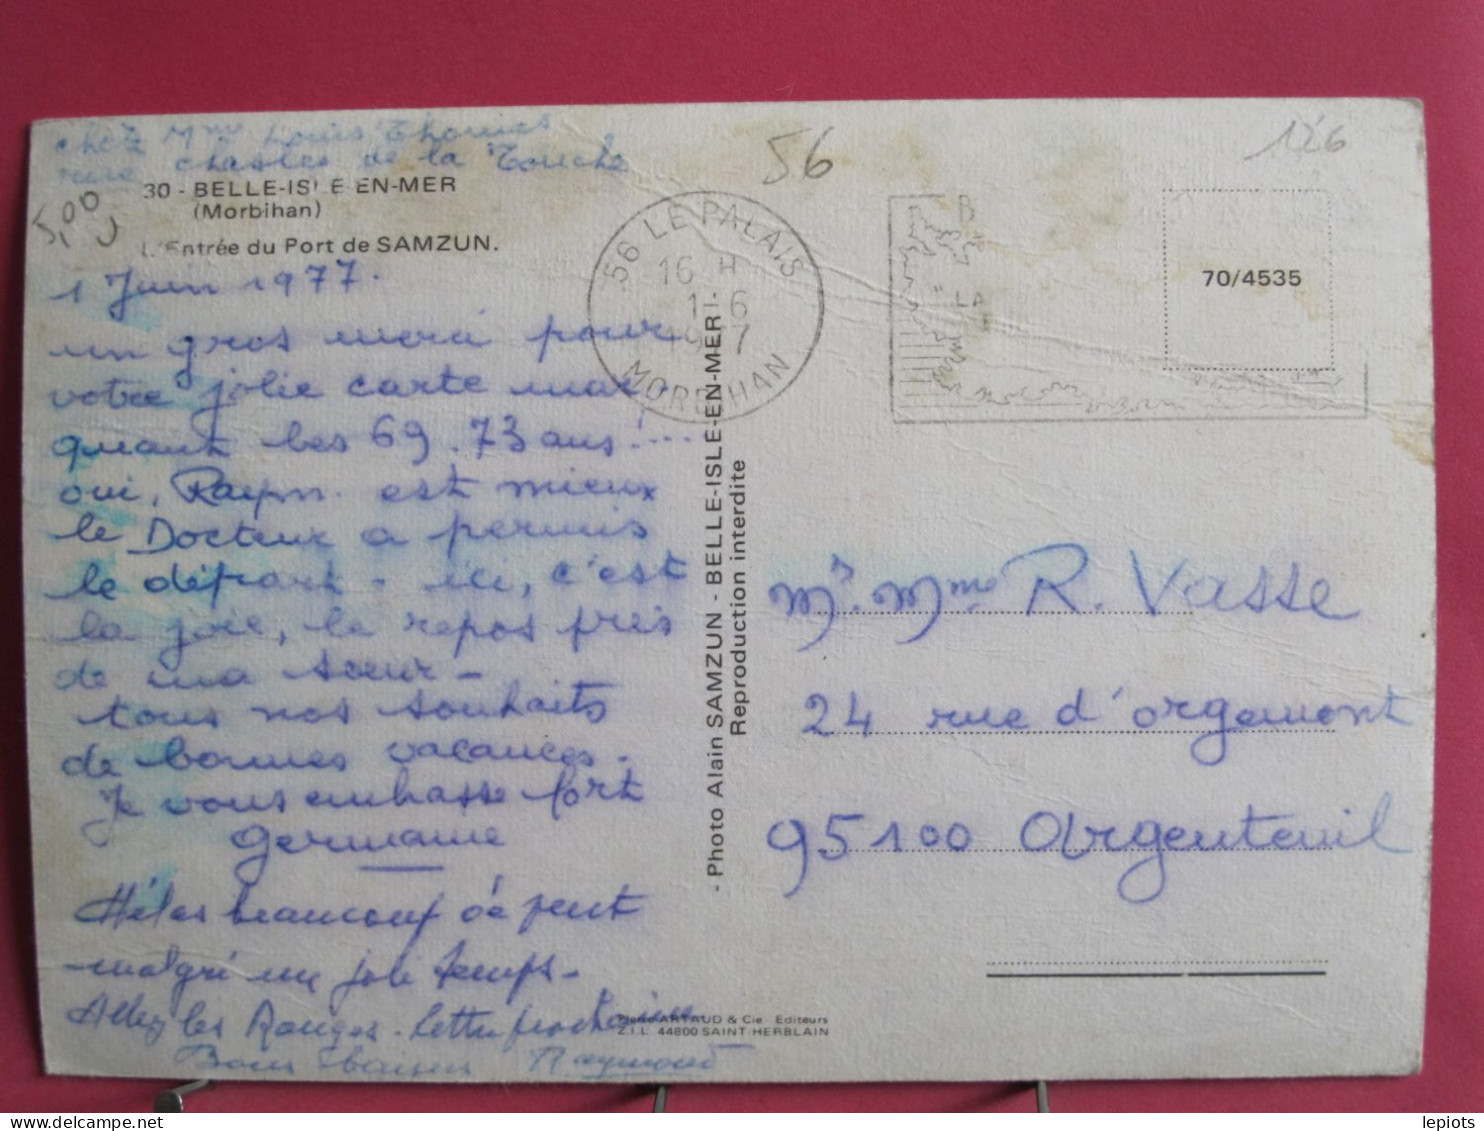 chez Mme Louis Thomas
rue Chasles de la Touche
5,00
30 - BELLE-ISLE-EN-MER
(Morbihan)
L'Entrée du Port de SAMZUN.
1 Juin 1977.
un gros merci pour
votre jolie carte mar-
quant les 69.73 ans!....
oui, Raym. est mieux
le Docteur a permis
le départ - ici, c'est
la joie, le repos près
de ma soeur -
tous nos souhaits
de bonnes vacances.
Je vous embrasse fort
Germaine
Hélas beaucoup de vent
malgré un joli temps -
Allez les Rouges. lettre prochaine
Bons Baisers Raymond
56
126
56 LE PALAIS
16 H
1-6
1977
MORBIHAN
B
LA
70/4535
- Photo Alain SAMZUN - BELLE-ISLE-EN-MER -
Reproduction interdite
Mr. Mme R. Vasse
24 rue d'orgemont
95100 Argenteuil
Pierre ARTAUD & Cie Editeurs
Z.I.L. 44800 SAINT-HERBLAIN
lepiots